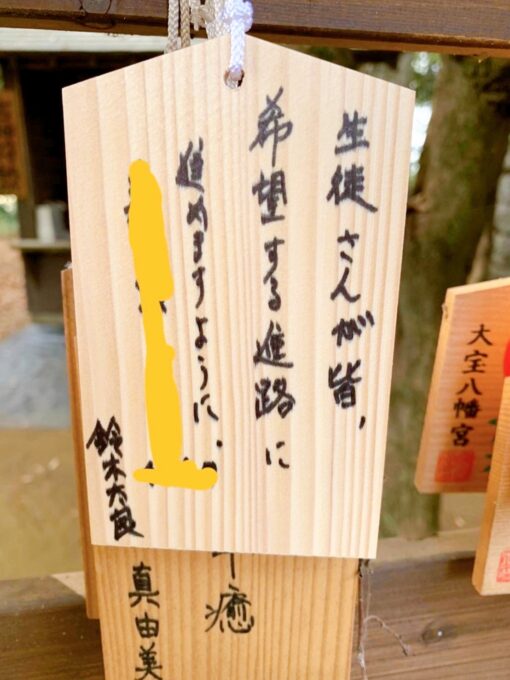 生徒さんが皆,
希望する進路に
進めますように.
鈴木太郎
癒
真由美
大宝八幡宮